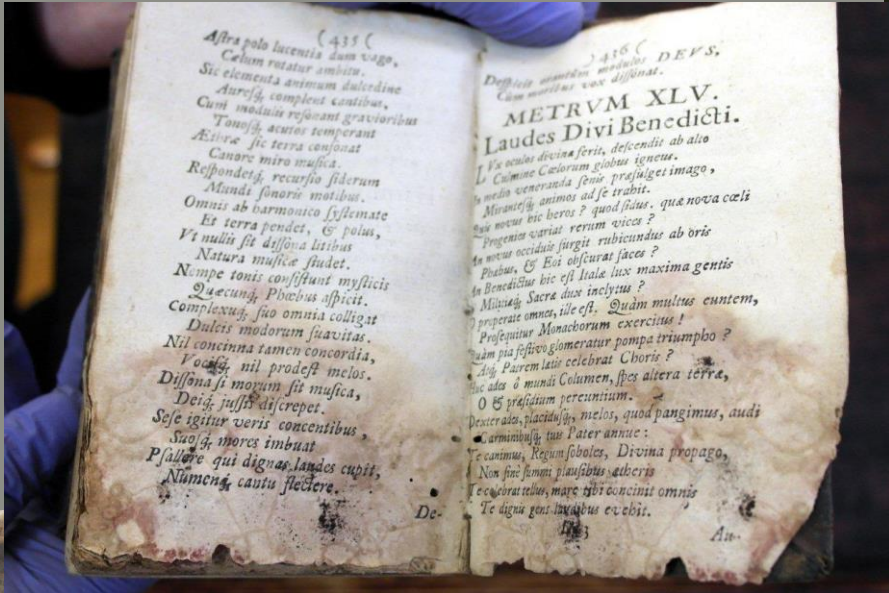 ( 435 (
Astra polo lucentia dum vago,
Cælum rotatur ambitu.
Sic elementa animum dulcedine
Auresq́; complent cantibus.
Cum modulis resonant gravioribus
Tonosq́; acutos temperant
Ætheræ sic terra consonat
Canore miro musica.
Respondetq́; recursio siderum
Mundi sonoris motibus.
Omnis ab harmonico systemate
Et terra pendet, & polus,
Vt nullis sit dissona litibus
Natura musicæ studet.
Nempe tonis consistunt mysticis
Quæcunq́; Phœbus aspicit.
Complexuq́; suo omnia colligat
Dulcis modorum suavitas.
Nil concinna tamen concordia,
Vocisq́; nil prodest melos.
Dissona si morum sit musica,
Deiq́; jussis discrepet.
Sese igitur veris concentibus,
Suosq́; mores imbuat
Psallere qui dignas laudes cupit,
Numenq́; cantu flectere.
De-
) 436 (
Despicit orantûm modulos DEVS,
Cùm moribus vox dissonat.
METRVM XLV.
Laudes Divi Benedicti.
LVx oculos divina ferit, descendit ab alto
Culmine Cælorum globus igneus.
In medio veneranda senis præfulget imago,
Mirantesq́; animos ad se trahit.
Quis novus hic heros? quod sidus. quæ nova cæli
Progenies variat rerum vices?
An novus occiduis surgit rubicundus ab oris
Phœbus, & Eoi obscurat faces?
An Benedictus hic est Italæ lux maxima gentis
Militiæq́; Sacræ dux inclytus?
O properate omnes, ille est. Quàm multus euntem,
Prosequitur Monachorum exercitus!
Quàm pia festivo glomeratur pompa triumpho?
Atq́; Patrem lætis celebrat Choris?
Huc ades ô mundi Columen, spes altera terræ,
O & præsidium pereuntium.
Dexter ades, placidusq́; melos, quod pangimus, audi
Carminibusq́; tuis Pater annue:
Te canimus, Regum soboles, Divina propago,
Non sine summi plausibus ætheris
Te celebrat tellus, mare tibi concinit omnis
Te dignis gens laudibus evehit.
Au-